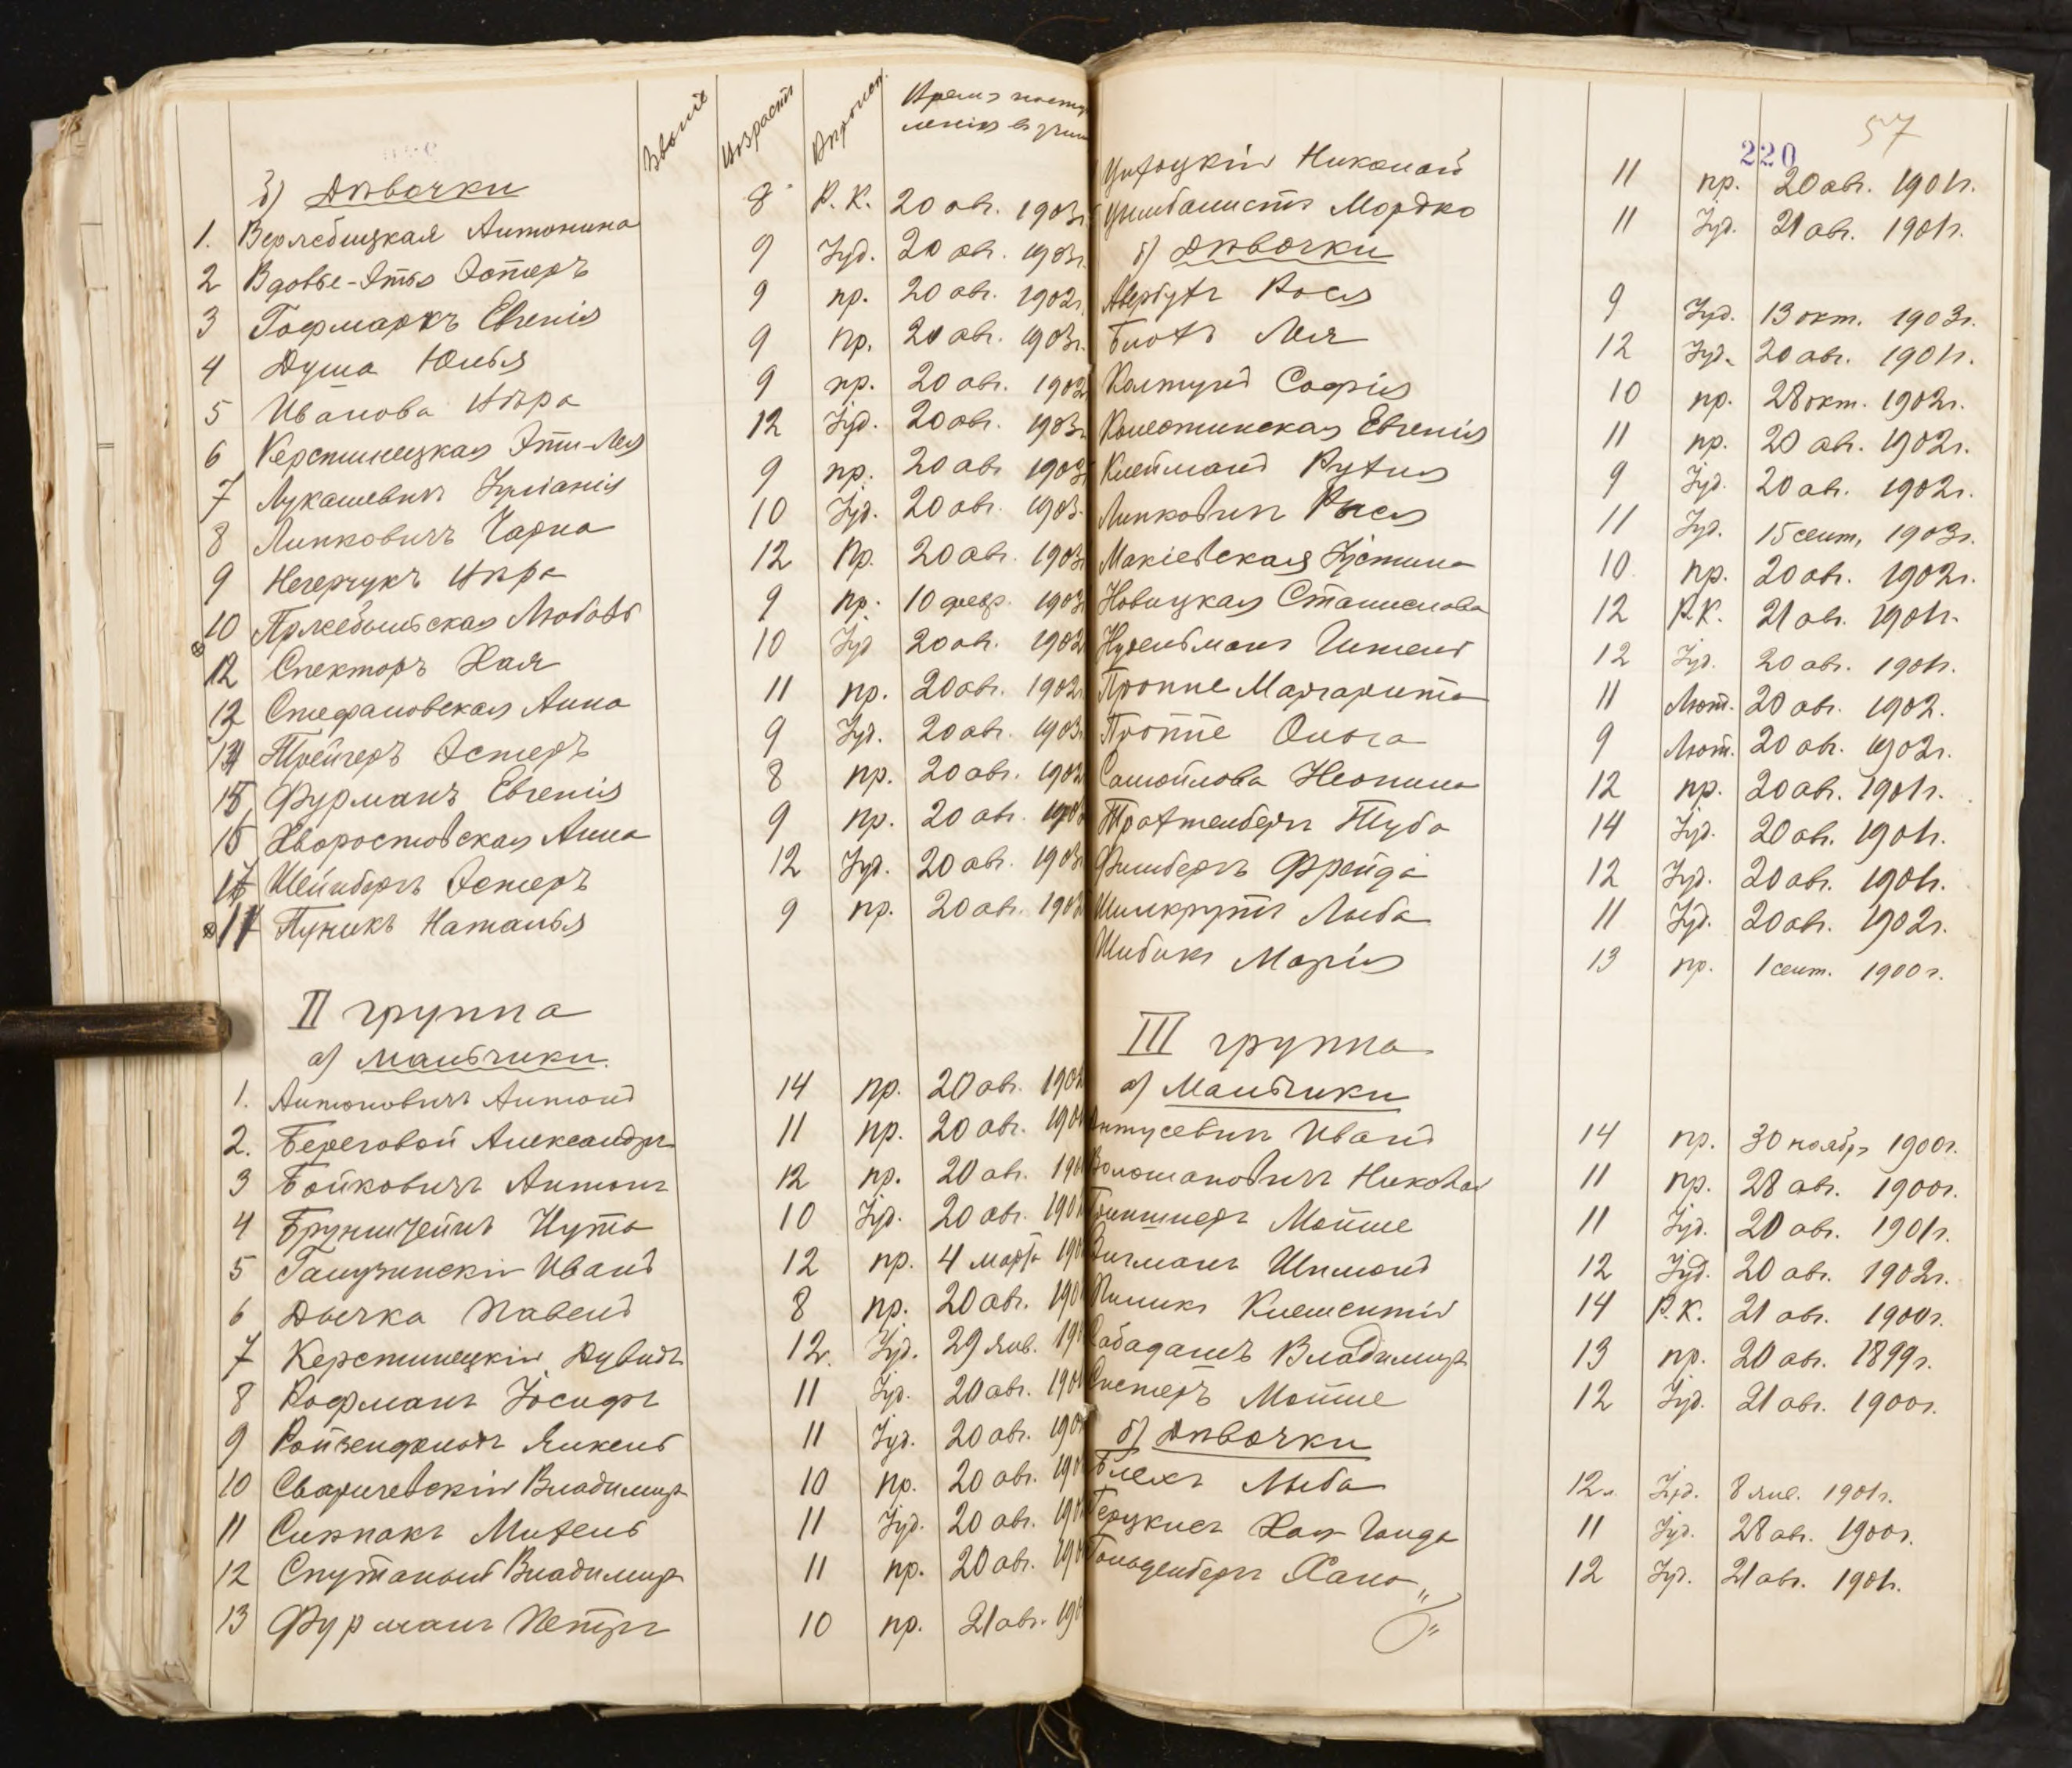 Званіе Возрастъ Вѣроисп. Время поступленія въ учил
б) Дѣвочки
1. Вержебицкая Антонина 8 Р.К. 20 авг. 1903г.
2 Вдовье-Этья Эстеръ 9 Іуд. 20 авг. 1903г.
3 Гофмаркъ Евгенія 9 пр. 20 авг. 1902г.
4 Душа Юлья 9 пр. 20 авг. 1903г.
5 Иванова Вѣра 9 пр. 20 авг. 1902
6 Керстинецкая Эти-Лея 12 Іуд. 20 авг. 1903г.
7 Лукашевичъ Іуліанія 9 пр. 20 авг 1903
8 Липковичъ Чарна 10 Іуд. 20 авг. 1903.
9 Нечерчукъ Вѣра 12 Пр. 20 авг. 1903
10 Пржебыльская Любовь 9 пр. 10 февр. 1903
12 Спекторъ Хая 10 Іуд 20 авг. 1902
12 Стефановская Анна 11 пр. 20 авг. 1902
14 Трейгеръ Эстеръ 9 Іуд. 20 авг. 1903
15 Фурманъ Евгенія 8 пр. 20 авг. 1902
16 Хворостовская Анна 9 пр. 20 авг.
17 Шейнбергъ Эстеръ 12 Іуд. 20 авг. 1903
17 Пужикъ Наталья 9 пр. 20 авг. 1903
II группа
а) мальчики.
1. Антоновичъ Антонъ 14 пр. 20 авг. 190
2. Береговой Александръ 11 пр. 20 авг. 190
3 Бойковичъ Антонъ 12 пр. 20 авг. 190
4 Брунштейнъ Нута 10 Іуд. 20 авг. 190
5 Галузинскій Иванъ 12 пр. 4 марта 190
6 Дычка Павелъ 8 пр. 20 авг. 190
7 Керстинецкій Дувидъ 12. Іуд. 29 янв. 19
8 Кофманъ Іосифъ 11 Іуд. 20 авг. 190
9 Ройзенфельдъ Янкель 11 Іуд. 20 авг. 190
10 Сваричевскій Владимиръ 10 пр. 20 авг. 190
11 Сирпакъ Михель 11 Іуд. 20 авг. 190
12 Спутаный Владимиръ 11 пр. 20 авг. 190
13 Фурманъ Петръ 10 пр. 21 авг. 190
57
220
Цихоцкій Николай 11 пр. 20 авг. 1901г.
Цимбалистъ Мордко 11 Іуд. 21 авг. 1901г.
б) Дѣвочки
Авербухъ Рося 9 Іуд. 13 окт. 1903г.
Блохъ Лея 12 Іуд. 20 авг. 1901г.
Колтунъ Софія 10 пр. 28 окт. 1902г.
Колеотинская Евгенія 11 пр. 20 авг. 1902г.
Клейманъ Рухля 9 Іуд. 20 авг. 1902г.
Липковичъ Рыся 11 Іуд. 15 сент. 1903г.
Макіевская Іустина 10 пр. 20 авг. 1902г.
Новицкая Станислава 12 Р.К. 21 авг. 1901г.
Нудельманъ 12 Іуд. 20 авг. 1901г.
Проппе Маргарита 11 Лют. 20 авг. 1902.
Проппе Ольга 9 Лют. 20 авг. 1902г.
Самойлова Неонила 12 пр. 20 авг. 1901г.
Трахтенбергъ Туба 14 Іуд. 20 авг. 1901г.
Фишбергъ Фрейда 12 Іуд. 20 авг. 1901г.
Шилкрутъ Лыба 11 Іуд. 20 авг. 1902г.
Шибикъ Марія 13 пр. 1 сент. 1900г.
III группа
а) Мальчики
Антусевичъ Иванъ 14 пр. 30 ноябр 1900г.
Волошановичъ Николай 11 пр. 28 авг. 1900г.
Мойше 11 Іуд. 20 авг. 1901г.
Шимонъ 12 Іуд. 20 авг. 1902г.
Климентій 14 Р.К. 21 авг. 1900г.
Сабадашъ Владимиръ 13 пр. 20 авг. 1899г.
Мойше 12 Іуд. 21 авг. 1900г.
б) Дѣвочки
Блехъ Лыба 12. Іуд. 8 янв. 1901г.
Герцкисъ Хая Голда 11 Іуд. 28 авг. 1900г.
Гольденбергъ Хана 12 Іуд. 21 авг. 1901г.